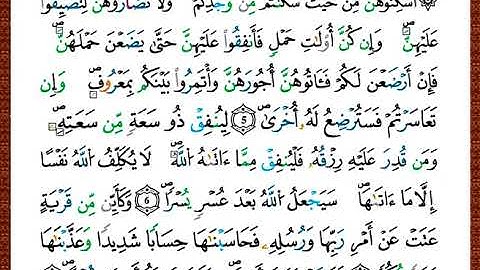 أَسْكِنُوهُنَّ مِنْ حَيْثُ سَكَنتُم مِّن وُجْدِكُمْ وَلَا تُضَارُّوهُنَّ لِتُضَيِّقُوا۟
عَلَيْهِنَّۖ وَإِن كُنَّ أُو۟لَٰتِ حَمْلٍ فَأَنفِقُوا۟ عَلَيْهِنَّ حَتَّىٰ يَضَعْنَ حَمْلَهُنَّۖ
فَإِنْ أَرْضَعْنَ لَكُمْ فَـَٔاتُوهُنَّ أُجُورَهُنَّ وَأْتَمِرُوا۟ بَيْنَكُم بِمَعْرُوفٍۖ وَإِن
تَعَاسَرْتُمْ فَسَتُرْضِعُ لَهُۥ أُخْرَىٰۖ 5 لِيُنفِقْ ذُو سَعَةٍ مِّن سَعَتِهِۦۖ
وَمَن قُدِرَ عَلَيْهِ رِزْقُهُۥ فَلْيُنفِقْ مِمَّا ءَاتَىٰهُ اللَّهُۖ لَا يُكَلِّفُ اللَّهُ نَفْسًا
إِلَّا مَا ءَاتَىٰهَاۖ سَيَجْعَلُ اللَّهُ بَعْدَ عُسْرٍ يُسْرًاۖ 6 وَكَأَيِّن مِّن قَرْيَةٍ
عَتَتْ عَنْ أَمْرِ رَبِّهَا وَرُسُلِهِۦ فَحَاسَبْنَٰهَا حِسَابًا شَدِيدًا وَعَذَّبْنَٰهَا